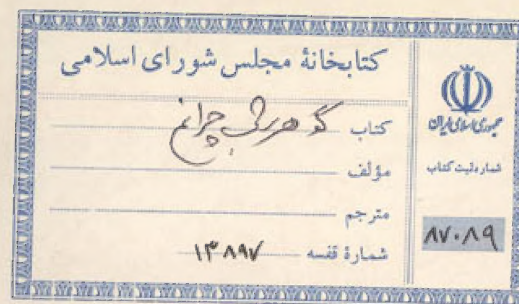 کتابخانهٔ مجلس شورای اسلامی
کتاب گوهر شب چراغ
مؤلف
مترجم
شمارهٔ قفسه ۱۳۸۹۷
جمهوری اسلامی ایران
شماره ثبت کتاب
۸۷۰۸۹